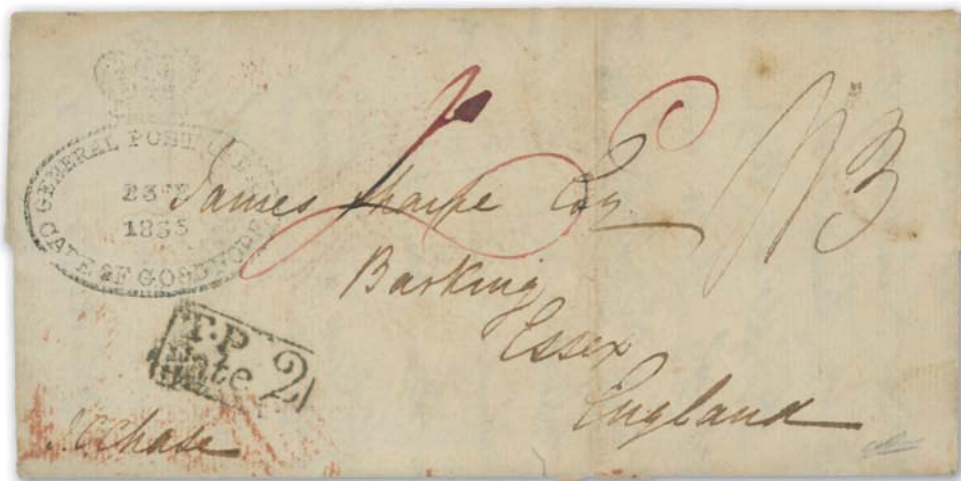 GENERAL POST OFFICE
1835
CAPE OF GOOD HOPE
James Sharpe Esq
Barking
Essex
England
T.P
Rate 2
J C Chase